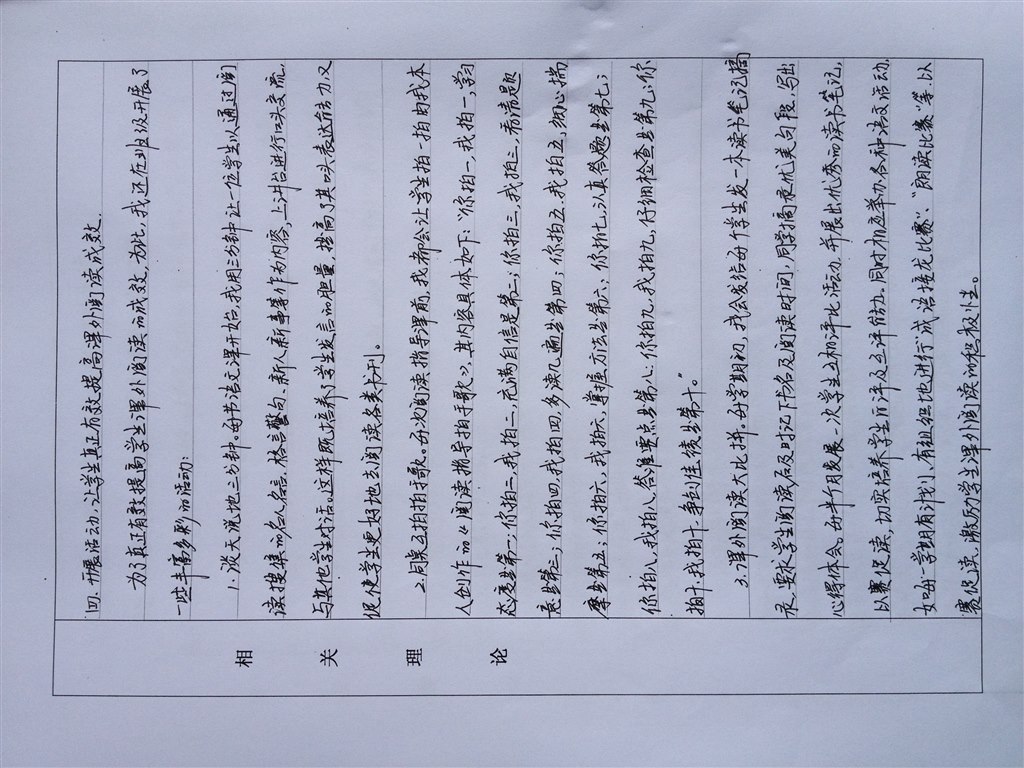 相关理论
四、开展活动,让学生真正有效提高课外阅读成效。
为了真正有效提高学生课外阅读的成效,为此,我还在班级开展了
一些丰富多彩的活动:
1、谈天说地三分钟。每节语文课开始,我用三分钟让一位学生以通过阅
读搜集的名人名言、格言警句、新人新事等作为内容,上讲台进行口头交流,
与其他学生对话。这样既培养了学生发言的胆量,提高了其口头表达能力,又
促使学生更好地去阅读各类书刊。
2、同桌互拍拍手歌。每次阅读指导课前,我都会让学生拍一拍由我本
人创作的《阅读指导拍手歌》,其内容具体如下:“你拍一,我拍一,学习
态度坐第一;你拍二,我拍二,充满自信是第二;你拍三,我拍三,看清题
意坐第三;你拍四,我拍四,多读几遍坐第四;你拍五,我拍五,细心揣
摩坐第五;你拍六,我拍六,掌握方法坐第六;你拍七,认真答题坐第七;
你拍八,我拍八,答准要点坐第八;你拍九,我拍九,仔细检查坐第九;你
拍十,我拍十,争创佳绩坐第十。”
3、课外阅读大比拼。每学期初,我会发给每个学生一本读书笔记摘
录,要求学生阅读后及时记下书名及阅读时间,同学摘录优美句段,写出
心得体会。每半个月发展一次学生互相评比活动,并展出优秀的读书笔记,
以赛促读,切实培养学生自评及互评能力。同时相应举办各种语文活动,
如每一学期有计划、有组织地进行“成语接龙比赛”“朗读比赛”等,以
赛促读,激发学生课外阅读的积极性。